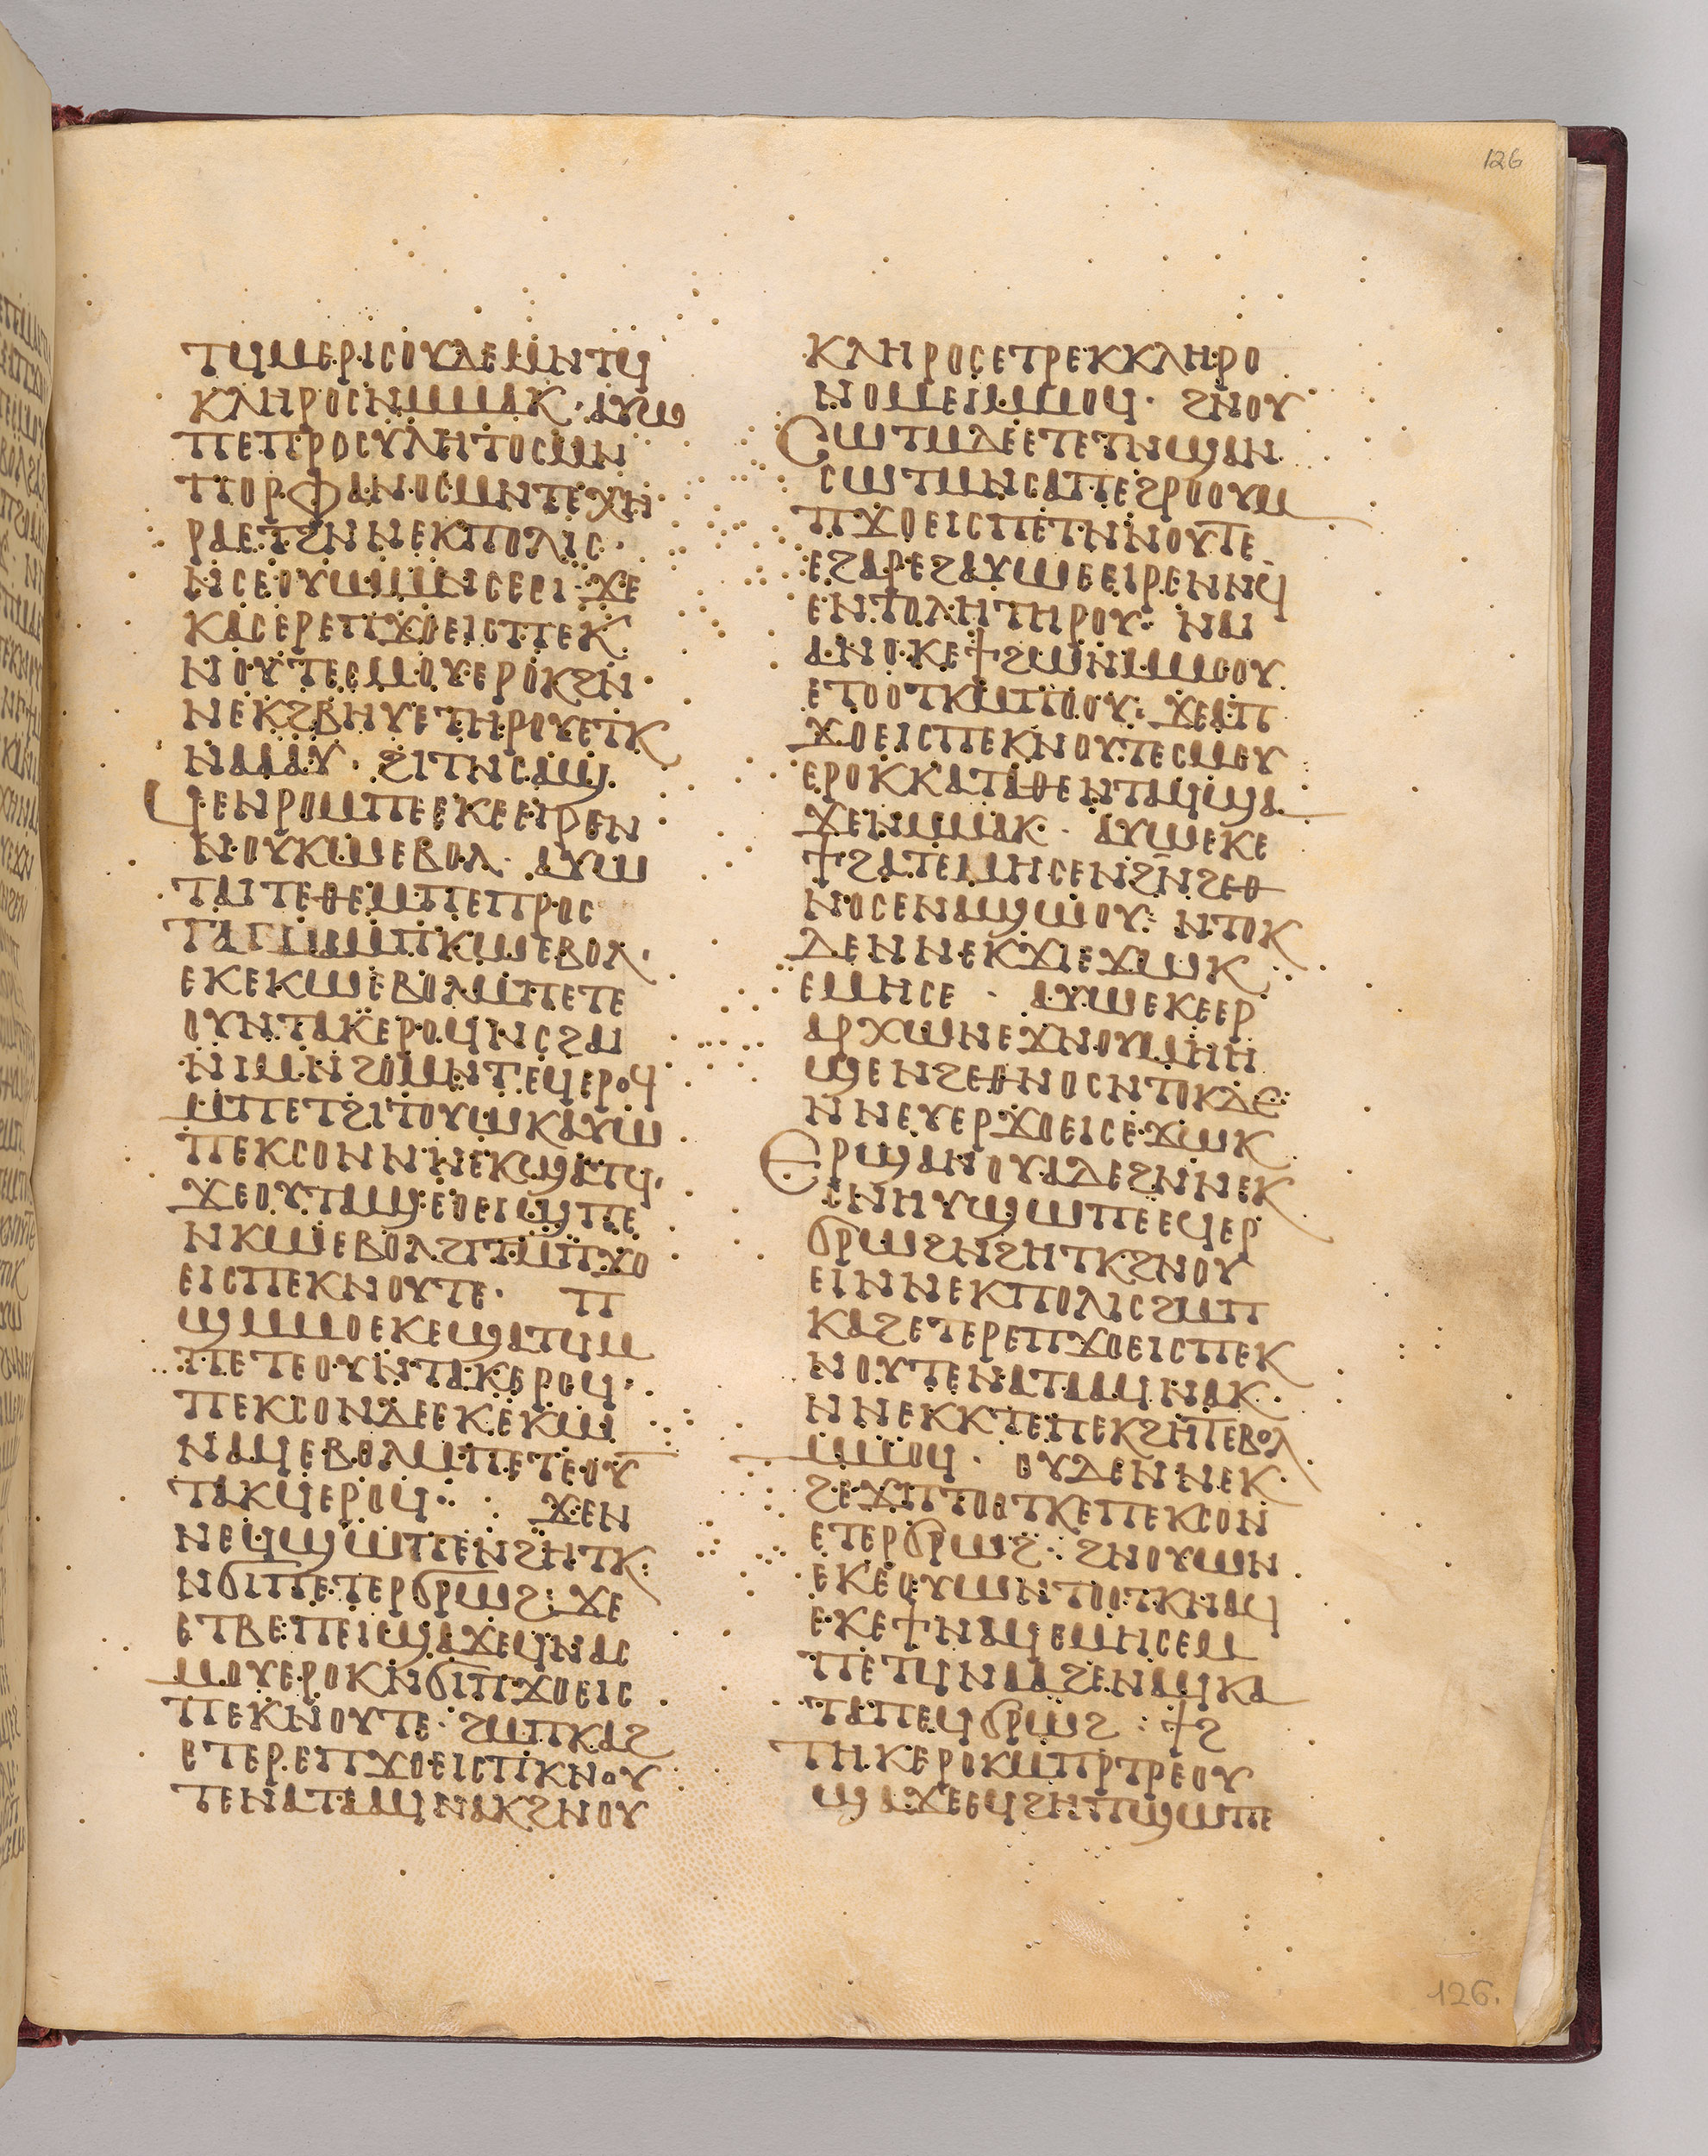 126
ⲧϥⲙⲉⲣⲓⲥⲟⲩⲇⲉⲙⲛⲧϥ
ⲕⲗⲏⲣⲟⲥⲛⲙⲙⲁⲕ· ⲁⲩⲱ
ⲡⲉⲡⲣⲟⲥⲩⲗⲏⲧⲟⲥⲙⲛ
ⲡⲟⲣⲫⲁⲛⲟⲥⲙⲛⲧⲉⲭⲏ
ⲣⲁⲉⲧϩⲛⲛⲉⲕⲡⲟⲗⲓⲥ·
ⲛⲥⲉⲟⲩⲱⲙⲛⲥⲉⲥⲓ· ϫⲉ
ⲕⲁⲥⲉⲣⲉⲡϫⲟⲉⲓⲥⲡⲉⲕ
ⲛⲟⲩⲧⲉⲥⲙⲟⲩⲉⲣⲟⲕϩⲛ
ⲛⲉⲕϩⲃⲏⲩⲉⲧⲏⲣⲟⲩⲉⲧⲕ
ⲛⲁⲁⲁⲩ· ϩⲓⲧⲛⲥⲁϣ
ϥⲉⲛⲣⲟⲙⲡⲉⲉⲕⲉⲉⲓⲣⲉⲛ
ⲛⲟⲩⲕⲱⲉⲃⲟⲗ· ⲁⲩⲱ
ⲧⲁⲓⲧⲉⲑⲉⲙⲡⲉⲡⲣⲟⲥ
ⲧⲁⲅⲙⲙⲡⲕⲱⲉⲃⲟⲗ·
ⲉⲕⲉⲕⲱⲉⲃⲟⲗⲙⲡⲉⲧⲉ
ⲟⲩⲛⲧⲁⲕⲉⲣⲟϥⲛⲥϩⲁⲓ
ⲛⲓⲙⲛϩⲟⲙⲛⲧⲉϥⲉⲣⲟϥ
ⲙⲡⲉⲧϩⲓⲧⲟⲩⲱⲕⲁⲩⲱ
ⲡⲉⲕⲥⲟⲛⲛⲛⲉⲕϣⲁⲧϥ·
ϫⲉⲟⲩⲧⲁϣⲉⲟⲉⲓϣⲡⲉ
ⲛⲕⲱⲉⲃⲟⲗϩⲓⲧⲙⲡϫⲟ
ⲉⲓⲥⲡⲉⲕⲛⲟⲩⲧⲉ· ⲡ
ϣⲙⲙⲟⲉⲕⲉϣⲁⲧϥⲙ
ⲡⲉⲧⲉⲟⲩⲛⲧⲁⲕⲉⲣⲟϥ·
ⲡⲉⲕⲥⲟⲛⲇⲉⲉⲕⲉⲕⲱ
ⲛⲁϥⲉⲃⲟⲗⲙⲡⲉⲧⲉⲟⲩ
ⲧⲁⲕϥⲉⲣⲟϥ: ϫⲉⲛ
ⲛⲉϥϣⲱⲡⲉⲛϩⲏⲧⲕ:
ⲛϭⲓⲡⲉⲧⲉⲣϭⲣⲱϩ: ϫⲉ
ⲉⲧⲃⲉⲡⲉⲓϣⲁϫⲉϥⲛⲁⲥ
ⲙⲟⲩⲉⲣⲟⲕⲛϭⲓⲡϫⲟⲉⲓⲥ
ⲡⲉⲕⲛⲟⲩⲧⲉ· ϩⲙⲡⲕⲁϩ
ⲉⲧⲉⲣⲉⲡϫⲟⲉⲓⲥⲡⲕⲛⲟⲩ
ⲧⲉⲛⲁⲧⲁⲁϥⲛⲁⲕϩⲛⲟⲩ
ⲕⲗⲏⲣⲟⲥⲉⲧⲣⲉⲕⲕⲗⲏⲣⲟ
ⲛⲟⲙⲉⲓⲙⲙⲟϥ· ϩⲛⲟⲩ
ⲥⲱⲧⲙⲇⲉⲉⲧⲉⲧⲛϣⲁⲛ
ⲥⲱⲧⲙⲛⲥⲁⲡⲉϩⲣⲟⲟⲩⲙ
ⲡϫⲟⲉⲓⲥⲡⲉⲧⲛⲛⲟⲩⲧⲉ
ⲉϩⲁⲣⲉϩⲁⲩⲱⲉⲉⲓⲣⲉⲛⲛϥ
ⲉⲛⲧⲟⲗⲏⲧⲏⲣⲟⲩ: ⲛⲁⲓ
ⲁⲛⲟⲕⲉϯϩⲱⲛⲙⲙⲟⲟⲩ
ⲉⲧⲟⲟⲧⲕⲙⲡⲟⲟⲩ: ϫⲉⲁⲡ
ϫⲟⲉⲓⲥⲡⲉⲕⲛⲟⲩⲧⲉⲥⲙⲉⲩ
ⲉⲣⲟⲕⲕⲁⲧⲁⲑⲉⲛⲧⲁϥϣⲁ
ϫⲉⲛⲙⲙⲁⲕ· ⲁⲩⲱⲉⲕⲉ
ϯϩⲁⲧⲉⲙⲏⲥⲉⲛϩⲛϩⲉⲑ
ⲛⲟⲥⲉⲛⲁϣⲱⲟⲩ: ⲛⲧⲟⲕ
ⲇⲉⲛⲛⲉⲕϫⲓⲉϫⲱⲕ
ⲉⲙⲏⲥⲉ· ⲁⲩⲱⲉⲕⲉⲉⲣ
ⲁⲣⲭⲱⲛⲉϫⲛⲟⲩⲙⲏⲏ
ϣⲉⲛϩⲉⲑⲛⲟⲥⲛⲧⲟⲕⲇⲉ
ⲛⲛⲉⲩⲉⲣϫⲟⲉⲓⲥⲉϫⲱⲕ
ⲉⲣϣⲁⲛⲟⲩⲁⲇⲉϩⲛⲛⲉⲕ
ⲥⲛⲏⲩϣⲱⲡⲉⲉϥⲉⲣ
ϭⲣⲱϩⲛϩⲏⲧⲕϩⲛⲟⲩ
ⲉⲓⲛⲛⲉⲕⲡⲟⲗⲓⲥϩⲙⲡ
ⲕⲁϩⲉⲧⲉⲣⲉⲡϫⲟⲉⲓⲥⲡⲉⲕ
ⲛⲟⲩⲧⲉⲛⲁⲧⲁⲁϥⲛⲁⲕ·
ⲛⲛⲉⲕⲕⲧⲉⲡⲉⲕϩⲏⲧⲉⲃⲟⲗ
ⲙⲙⲟϥ· ⲟⲩⲇⲉⲛⲛⲉⲕ
ϩⲉϫⲡⲧⲟⲟⲧⲕⲉⲡⲉⲕⲥⲟⲛ
ⲉⲧⲉⲣϭⲣⲱϩ: ϩⲛⲟⲩⲱⲛ
ⲉⲕⲉⲟⲩⲱⲛⲧⲟⲟⲧⲕⲛⲁϥ
ⲉⲕⲉϯⲛⲁϥⲉⲙⲏⲥⲉⲙ
ⲡⲉⲧϥⲛⲁⲁϩⲉⲛⲁϥⲕⲁ
ⲧⲁⲡⲉϥϭⲣⲱϩ: ϯϩ
ⲧⲏⲕⲉⲣⲟⲕⲙⲡⲣⲧⲣⲉⲟⲩ
ϣⲁϫⲉⲉϥϩⲏⲡϣⲱⲡⲉ
126.